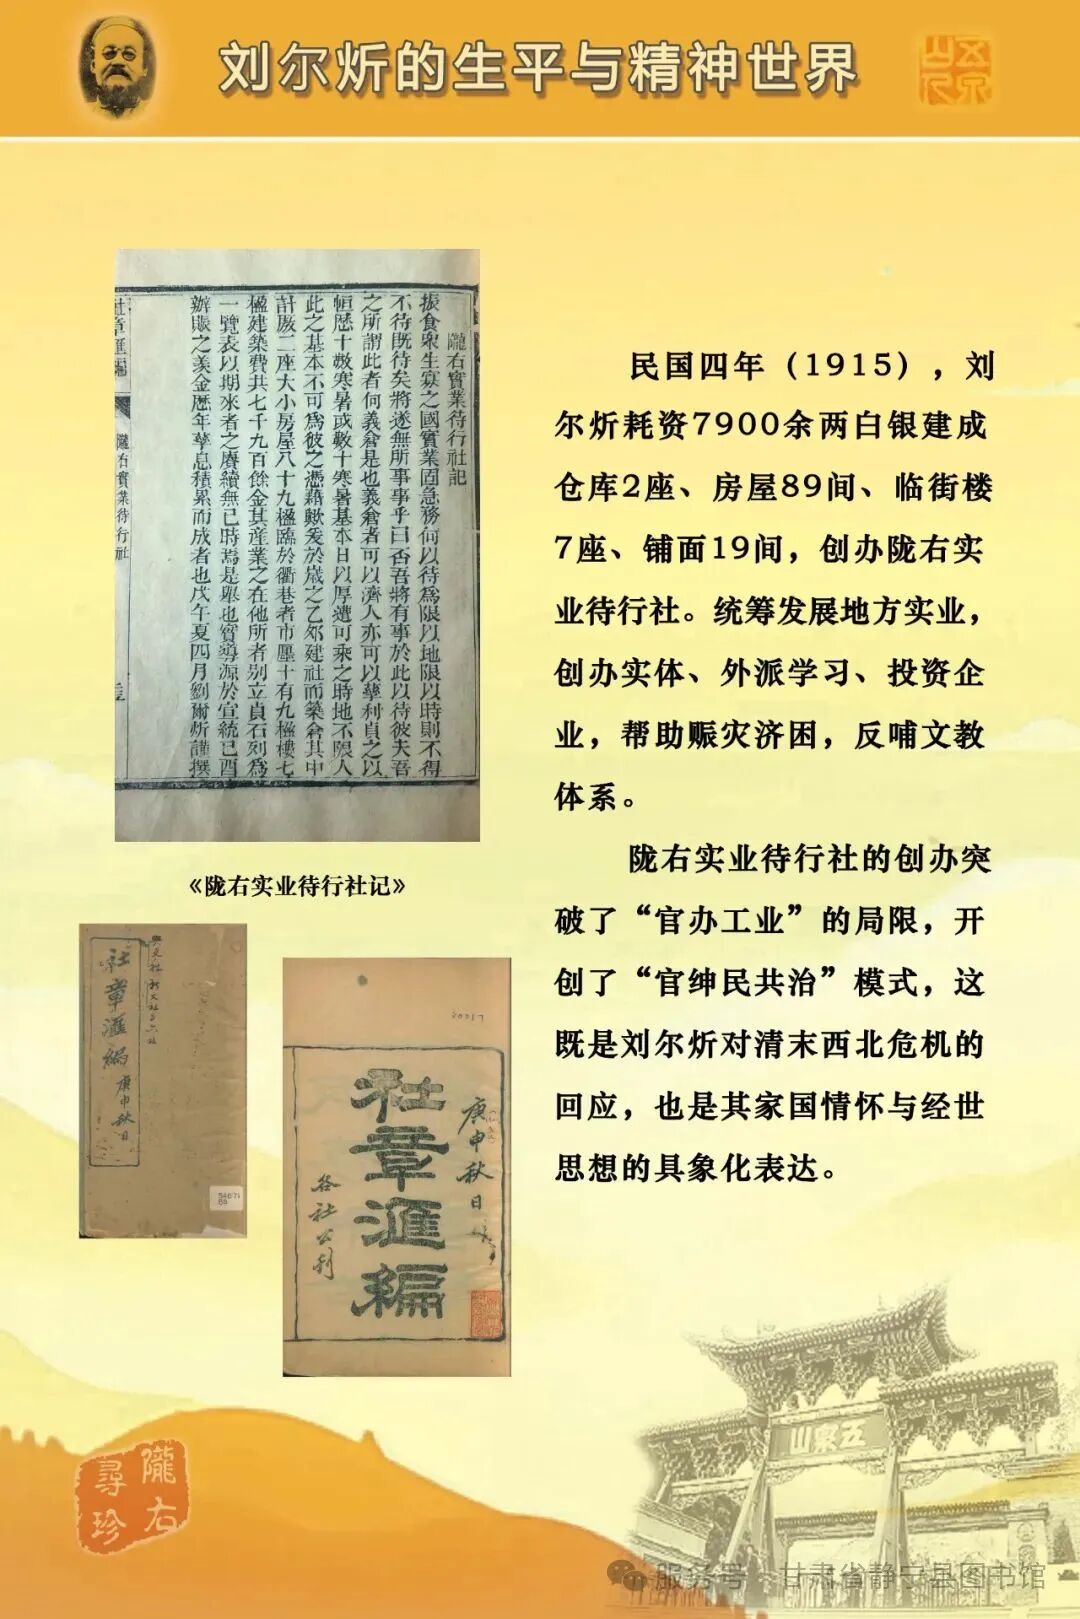 刘尔炘的生平与精神世界
隴右實業待行社記
振食衆生寡之國實業固急務何以待爲限以地限以時則不得
不待既待矣將遂無所事事乎曰否吾將有事於此以待彼夫吾
之所謂此者何義倉是也義倉者可以濟人亦可以孳利貞之以
恒歷十數寒暑或數十寒暑基本日以厚遭可乘之時地不限人
此之基本不可爲彼之憑藉歟爰於歲之乙夘建社而築倉其中
計厫二座大小房屋八十九楹臨於衢巷者市廛十有九楹樓七
楹建築費共七千九百餘金其產業之在他所者别立貞石列爲
一覽表以期來者之賡續無已時焉是舉也實導源於宣統己酉
辦賑之羨金歷年孳息積累而成者也戊午夏四月劉爾炘謹撰
社章匯編
隴右實業待行社
《陇右实业待行社记》
社章滙編
庚申秋日
社章滙編
庚申秋日
各社公刊
民国四年（1915），刘
尔炘耗资7900余两白银建成
仓库2座、房屋89间、临街楼
7座、铺面19间，创办陇右实
业待行社。统筹发展地方实业，
创办实体、外派学习、投资企
业，帮助赈灾济困，反哺文教
体系。
陇右实业待行社的创办突
破了“官办工业”的局限，开
创了“官绅民共治”模式，这
既是刘尔炘对清末西北危机的
回应，也是其家国情怀与经世
思想的具象化表达。
隴右
尋珍
五泉山
服务号 · 甘肃省静宁县图书馆